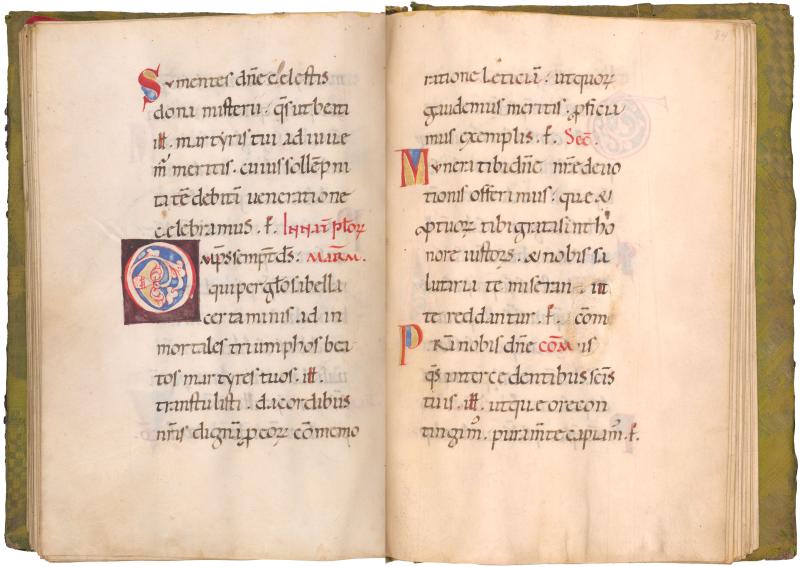 Sumentes dn̄e celestis
dona misterii. q̄s ut beati
ill. martyris tui adiuve
m̄ meritis. cuius sollēpni
tatē debitā veneratione
celebramus. ꝑ.
IN NAT̄ PLOR̄
MAR̄M.
Omp̄s semp̄t d̄s.
qui per gl̄osa bella
certaminis. ad in
mortales triumphos bea
tos martyres tuos. ill.
transtulisti. da cordibus
nr̄is dignā p̄ eoꝝ cōmemo
84
ratione leticiā. ut quoꝝ
gaudemus meritis. ꝓficia
mus exemplis. ꝑ. Sec̄.
Munera tibi dn̄e nr̄e devo
tionis offerimus. que &
ꝓ tuoꝝ tibi grata sint ho
nore iustoꝝ. & nobis sa
lutaria te miseran
te reddantur. ꝑ. com̄
nobis dn̄e COM̄ is
q̄s intercedentibus sc̄is
tuis. ill. ut que ore con
tingim̄. pura m̄te capiam̄. ꝑ.